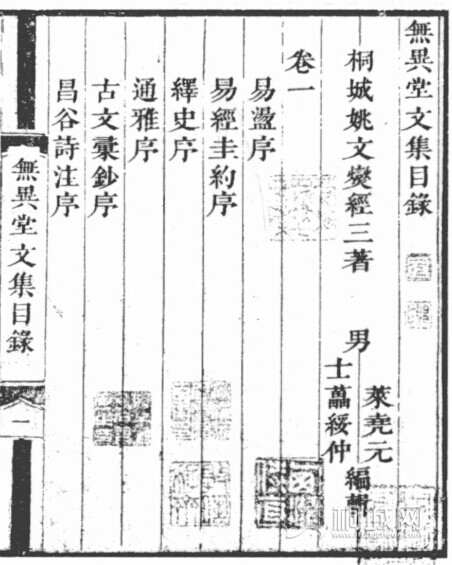 無異堂文集目錄
桐城姚文燮經三著 男
萊堯元
士藟綏仲
編輯
卷一
易盪序
易經圭約序
繹史序
通雅序
古文彙鈔序
昌谷詩注序
無異堂文集目錄
一
桐城网